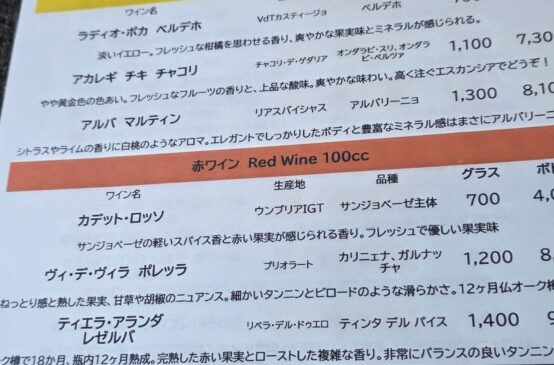 ワイン名
ラディオ・ボカ ベルデホ VdTカスティージョ ベルデホ
淡いイエロー。フレッシュな柑橘を思わせる香り、爽やかな果実味とミネラルが感じられる。
アカレギ チキ チャコリ チャコリ・デ・ゲタリア オンダラビ・スリ、オンダラビ・ベルツァ 1,100 7,30
やや黄金色の色あい。フレッシュなフルーツの香りと、上品な酸味。爽やかな味わい。高く注ぐエスカンシアでどうぞ!
アルバ マルティン リアスバイシャス アルバリーニョ 1,300 8,10
シトラスやライムの香りに白桃のようなアロマ。エレガントでしっかりしたボディと豊富なミネラル感はまさにアルバリーニ
赤ワイン Red Wine 100cc
ワイン名 生産地 品種 グラス ボト
カデット・ロッソ ウンブリアIGT サンジョベーゼ主体 700 4,0
サンジョベーゼの軽いスパイス香と赤い果実が感じられる香り。フレッシュで優しい果実味
ヴィ・デ・ヴィラ ポレッラ プリオラート カリニェナ、ガルナッチャ 1,200 8,
ねっとり感と熟した果実、甘草や胡椒のニュアンス。細かいタンニンとビロードのような滑らかさ。12ヶ月仏オーク樽
ティエラ・アランダ レゼルバ リベラ・デル・ドゥエロ ティンタ デル パイス 1,400
ーク樽で18か月、瓶内12ヶ月熟成。完熟した赤い果実とローストした複雑な香り。非常にバランスの良いタンニン